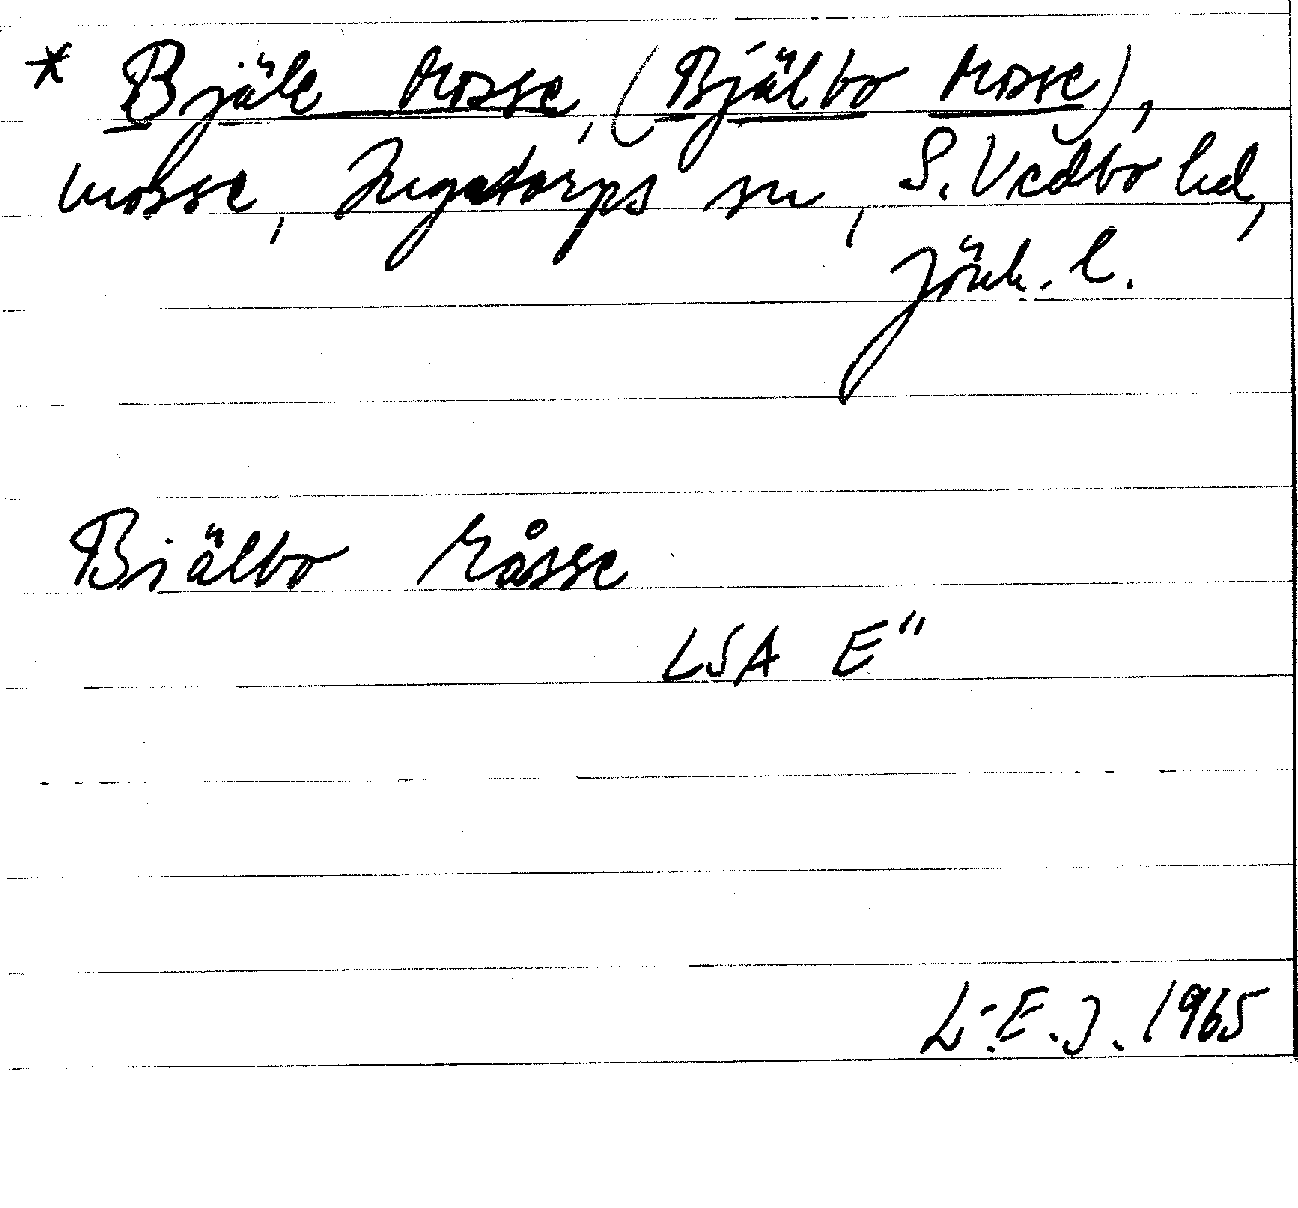 * Bjäle Mosse, (Bjälbo Mosse),
mosse, Ingatorps sn, S. Vedbo hd,
Jönk. l.
Biälbo Måsse
LSA E"
L-E. J. 1965